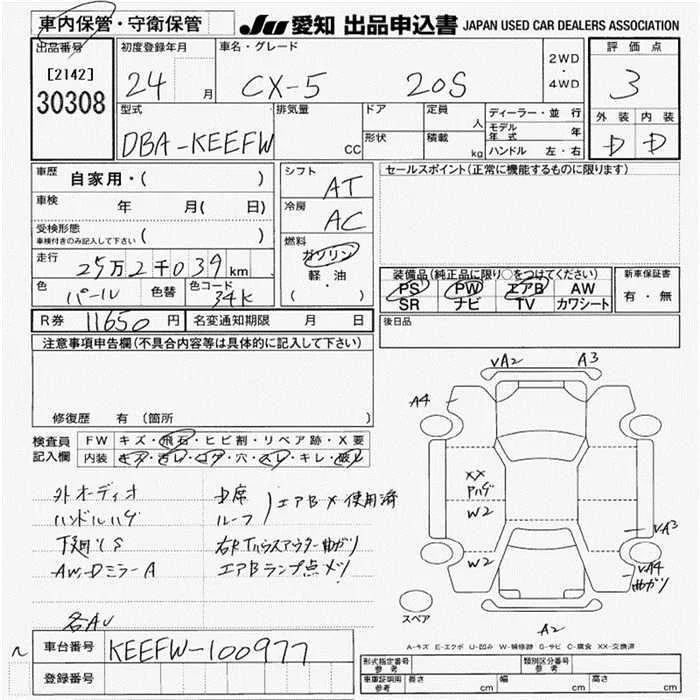 車内保管・守衛保管
JU 愛知 出品申込書 JAPAN USED CAR DEALERS ASSOCIATION
出品番号 [2142] 30308
初度登録年月 24 月
車名・グレード CX-5 20S
2WD・4WD
評価点 3
外装 D 内装 D
型式 DBA-KEEFW
排気量 cc
ドア 形状
定員 人 積載 kg
ディーラー・並行
モデル年式 年
ハンドル 左・右
車歴 自家用・( )
車検 年 月( 日)
受検形態 車検付きのみ記入して下さい ( )
走行 25万2千039km
色 パール 色替 色コード 34K
シフト AT
冷房 AC
燃料 ガソリン 軽油 ( )
セールスポイント(正常に機能するものに限ります)
装備品(純正品に限り○をつけてください)
PS PW エアB AW
SR ナビ TV カワシート
新車保証書 有・無
R券 11650円 名変通知期限 月 日
後日品
注意事項申告欄(不具合内容等は具体的に記入して下さい)
修復歴 有 (箇所 )
検査員記入欄
FW キズ・飛石・ヒビ割・リペア跡・X要
内装 キズ・汚レ・コゲ・穴・スレ・キレ・破レ
外オーディオ
ハンドルハゲ
下廻りS
AW,Dミラー A
D席
ルーフ
エアB X 使用済
エアBランプ点メツ
車台番号 KEEFW-100977
登録番号
VA2 A3
A4
XX
W2
VA3
W2
VA4
曲ガリ
A2
スペア
A-キズ E-エクボ U-凹み W-補修跡 S-サビ C-腐食 XX-交換済
形式指定番号 参考
類別区分番号 参考
車庫証明用 参考 長さ cm 幅 cm 高さ cm